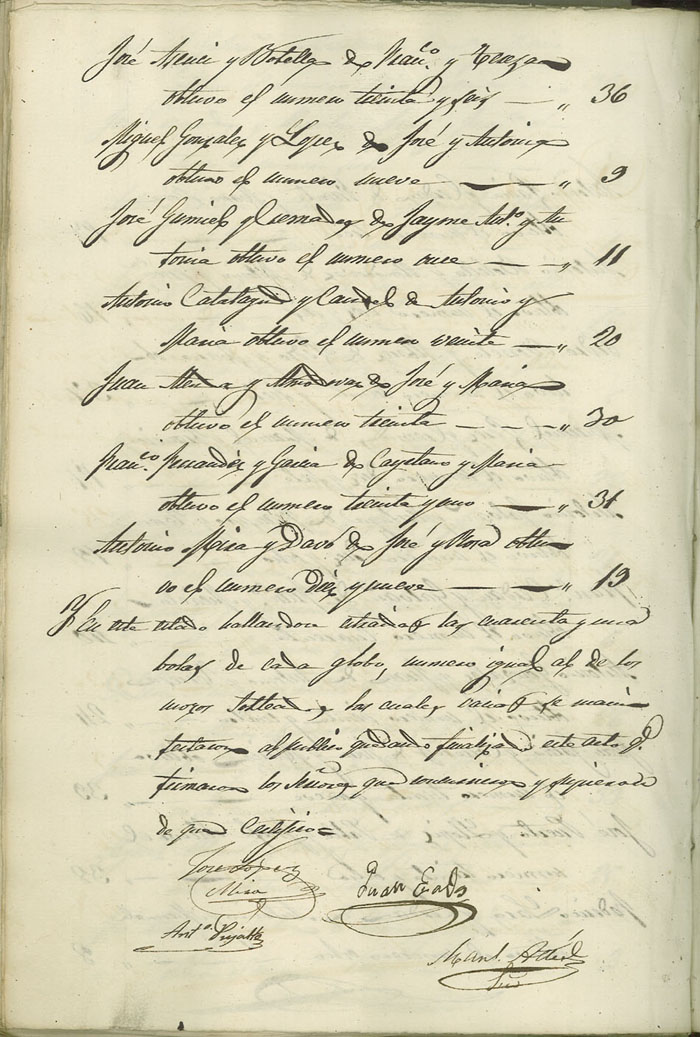 José y Botella de Fran.co y Tereza
obtuvo el numero treinta y seis — „ 36
Miguel Gonzalez y Lopez de José y Antonia
obtuvo el numero nueve — — „ 9
José Gumiel y de Jayme Ant.o y An
tonia obtuvo el numero once — — „ 11
Antonio Calatayud y Candel de Antonio y
Maria obtuvo el numero veinte — „ 20
Juan y de José y Maria
obtuvo el numero treinta — — — „ 30
Fran.co Fernandez y Garcia de Cayetano y Maria
obtuvo el numero treinta y uno — „ 31
Antonio Mira y Davó de José y Rosa obtu-
vo el numero diez y nueve — — „ 19
Y en este estado hallandose las cuarenta y una
bolas de cada globo, numero igual al de los
mozos sorteados, las cuales se mani
festaron al publico quedando finalizado este acto q.
firmaron los Señores que concurrieron y supieron
de que Certifico=
Jose Lopez
Mira
Juan
Ant.o
Man.l